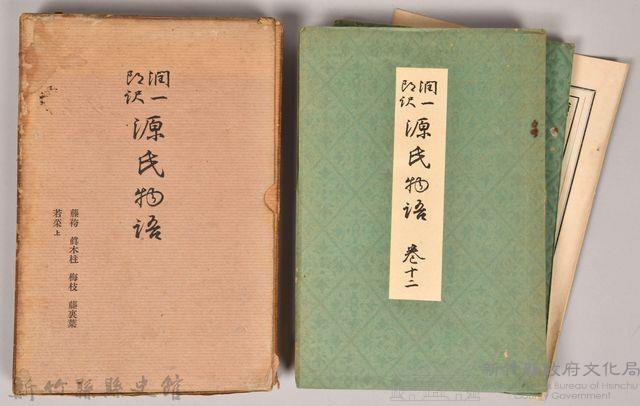 潤一
郎訳
源氏物語
藤袴 眞木柱 梅枝 藤裏葉
若菜上
潤一
郎訳
源氏物語
卷十二
新竹縣縣史館
新竹縣政府文化局
Bureau of Hsinchu
County Government